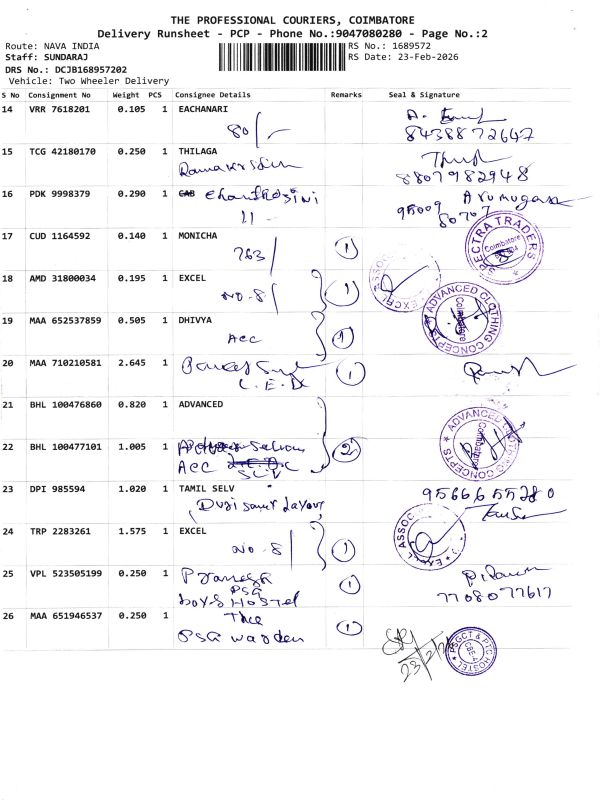 THE PROFESSIONAL COURIERS, COIMBATORE
Delivery Runsheet - PCP - Phone No.:9047080280 - Page No.:2
Route: NAVA INDIA
RS No.: 1689572
Staff: SUNDARAJ
RS Date: 23-Feb-2026
DRS No.: DCJB168957202
Vehicle: Two Wheeler Delivery
S No Consignment No Weight PCS Consignee Details Remarks Seal & Signature
14 VRR 7618201 0.105 1 EACHANARI
80/-
8438872647
15 TCG 42180170 0.250 1 THILAGA
8807982948
16 PDK 9998379 0.290 1 CAB
11 -
Arumugam
95009
80707
17 CUD 1164592 0.140 1 MONICHA
763/
1
SPECTRA TRADERS
Coimbatore
18 AMD 31800034 0.195 1 EXCEL
NO-8/
1
EXCEL ASSOC
19 MAA 652537859 0.505 1 DHIVYA
Acc
1
ADVANCED CLOTHING CONCEPTS
Coimbatore
20 MAA 710210581 2.645 1
1
21 BHL 100476860 0.820 1 ADVANCED
22 BHL 100477101 1.005 1
Acc
2
ADVANCED CLOTHING CONCEPTS
Coimbatore
23 DPI 985594 1.020 1 TAMIL SELV
9566655280
24 TRP 2283261 1.575 1 EXCEL
NO-8/
1
EXCEL ASSOC
25 VPL 523505199 0.250 1
PSG
boys Hostel
1
7708077617
26 MAA 651946537 0.250 1 The
PSG warden
1
23/2/26
PSGCT & PTC HOSTEL
CBE-4